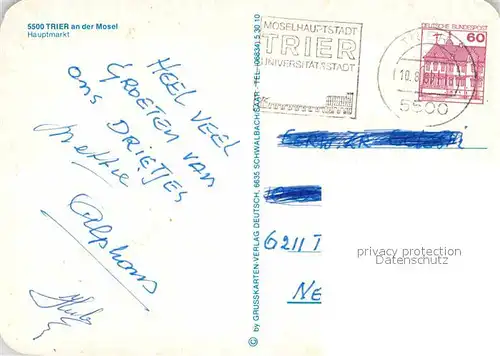 5500 TRIER an der Mosel
Hauptmarkt
HEEL VEEL
GROETEN VAN
ONS DRIETJES
Alphons
© by GRUSSKARTEN-VERLAG DEUTSCH, 6635 SCHWALBACH/SAAR · TEL. (06834) 5 30 10
MOSELHAUPTSTADT
TRIER
UNIVERSITÄTSSTADT
DEUTSCHE BUNDESPOST
60
5500
6211 T
NE
privacy protection
Datenschutz